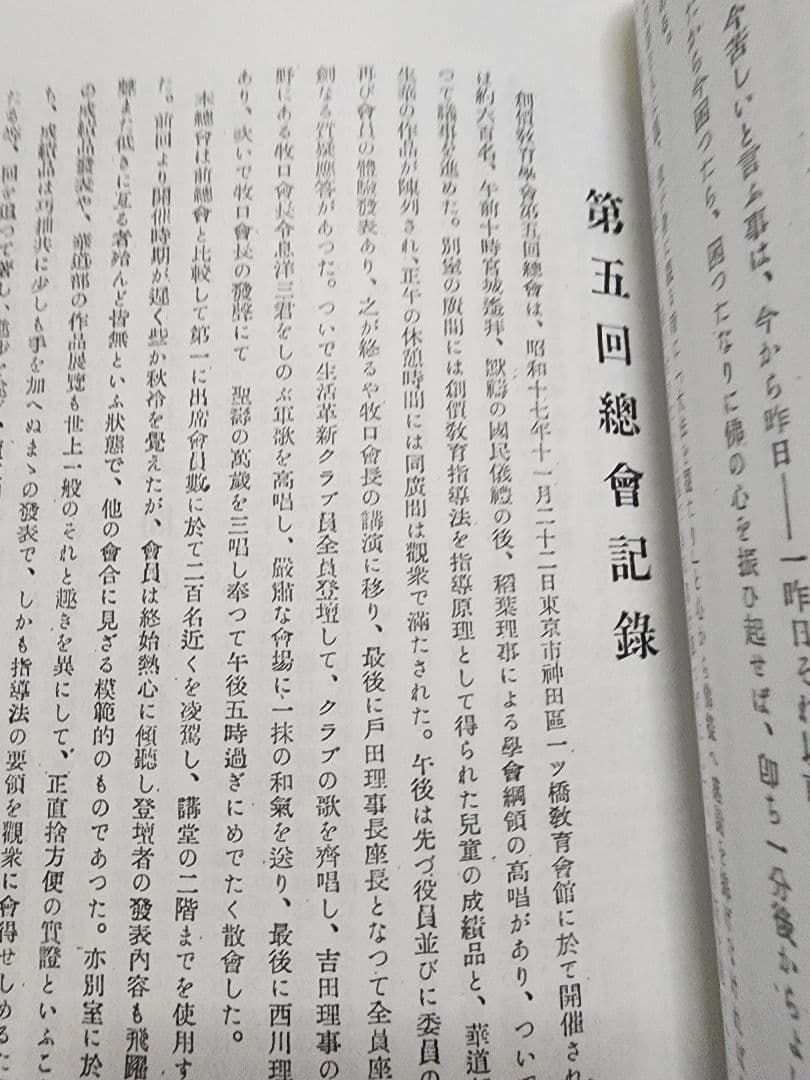 今苦しいと言ふ事は、今から昨日──一昨日それ以
から今困つたら、困つたなりに佛の心を振ひ起せば、卽ち一分後から
第五回總會記錄
創價教育學會第五回總會は、昭和十七年十一月二十二日東京市神田區一ツ橋教育會館に於て開催され
は約六百名、午前十時宮城遙拜、默禱の國民儀禮の後、稻葉理事による學會綱領の高唱があり、ついで
つて議事を進めた。別室の廣間には創價教育指導法を指導原理として得られた兒童の成績品と、華道
生華の作品が陳列され、正午の休憩時間には同廣間は觀衆で滿たされた。午後は先づ役員並びに委員の
再び會員の體驗發表あり、之が終るや牧口會長の講演に移り、最後に戶田理事長座長となつて全員座
劍なる質疑應答があつた。ついで生活革新クラブ員全員登壇して、クラブの歌を齊唱し、吉田理事の
野にある牧口會長令息洋三君をしのぶ軍歌を高唱し、嚴肅な會場に一抹の和氣を送り、最後に西川理
あり、次いで牧口會長の發聲にて 聖壽の萬歲を三唱し奉つて午後五時過ぎにめでたく散會した。
本總會は前總會と比較して第一に出席會員數に於て二百名近くを凌駕し、講堂の二階までを使用す
た。前回より開催時期が遲く些か秋冷を覺えたが、會員は終始熱心に傾聽し登壇者の發表內容も飛躍
聽また低きに亙る者殆んど皆無といふ狀態で、他の會合に見ざる模範的のものであつた。亦別室に於
の成績品發表や、華道部の作品展覽も世上一般のそれと趣きを異にして、正直捨方便の實證といふこ
も、成績品は巧拙共に少しも手を加へぬまゝの發表で、しかも指導法の要領を觀衆に會得せしめるた